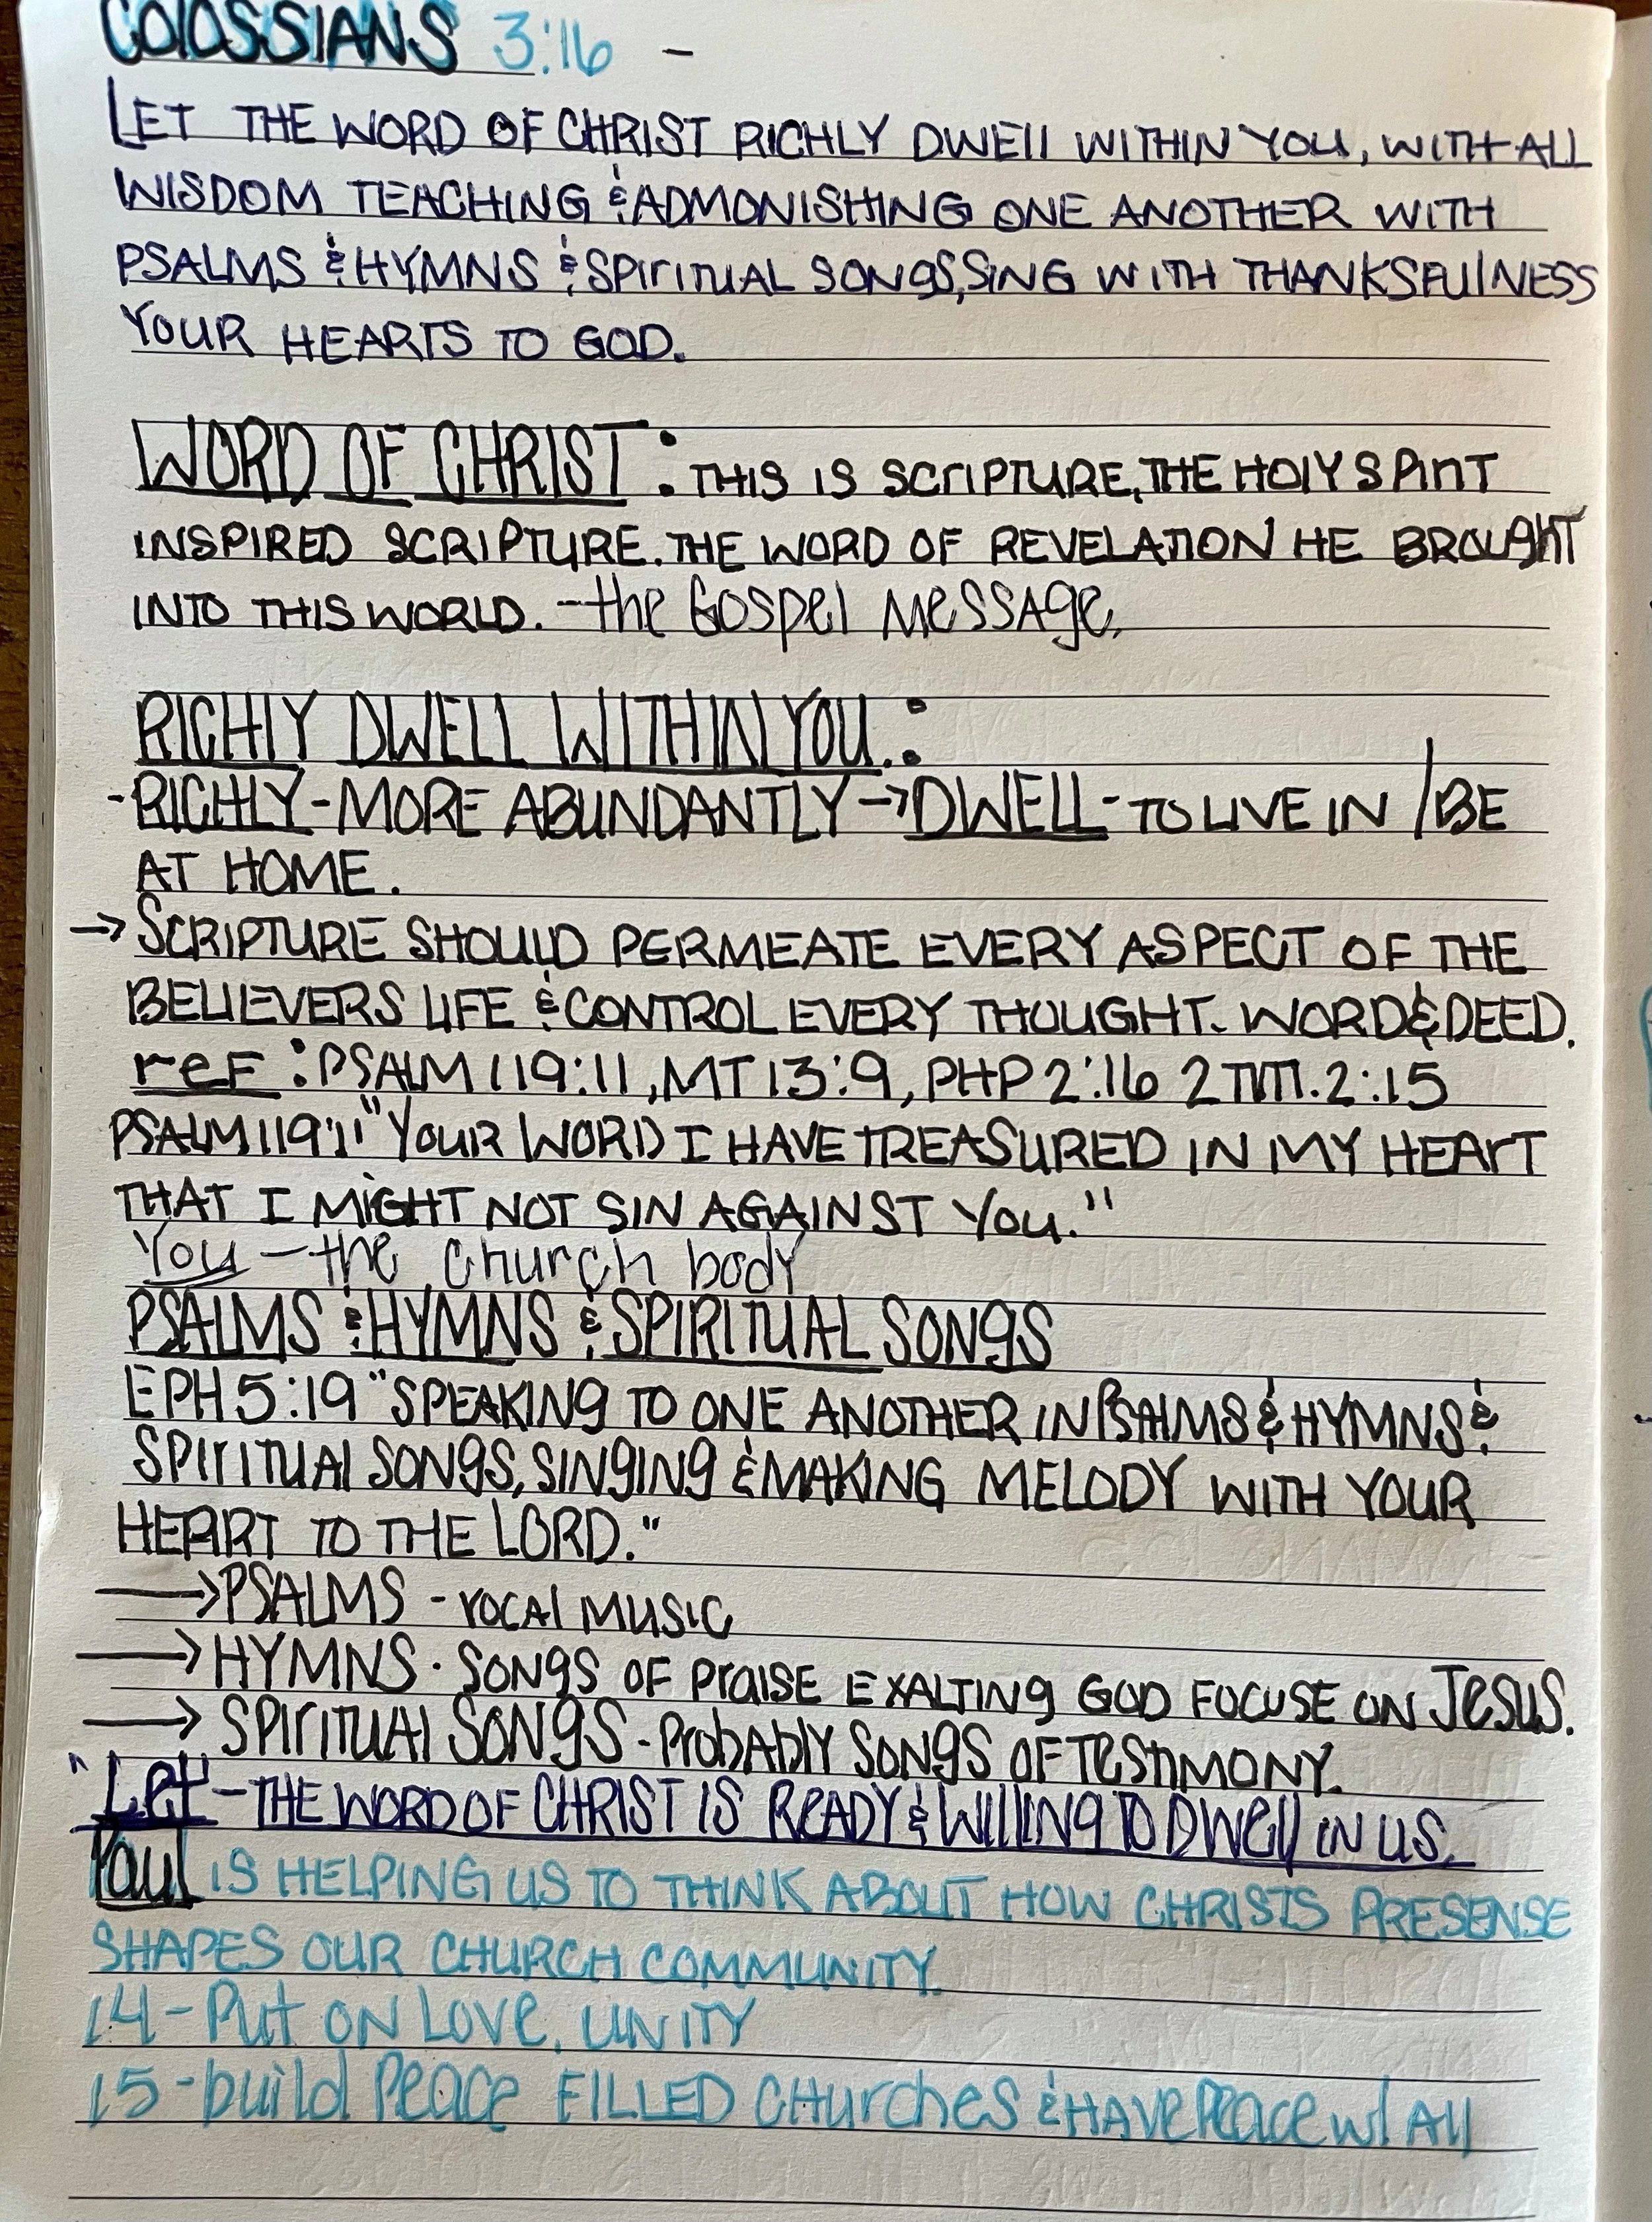 COLOSSIANS 3:16 -
LET THE WORD OF CHRIST RICHLY DWELL WITHIN YOU, WITH ALL
WISDOM TEACHING & ADMONISHING ONE ANOTHER WITH
PSALMS & HYMNS & SPIRITUAL SONGS, SING WITH THANKSFULNESS
YOUR HEARTS TO GOD.
WORD OF CHRIST: THIS IS SCRIPTURE, THE HOLY SPIRIT
INSPIRED SCRIPTURE. THE WORD OF REVELATION HE BROUGHT
INTO THIS WORLD. - the Gospel Message.
RICHLY DWELL WITHIN YOU.:
- RICHLY - MORE ABUNDANTLY → DWELL - TO LIVE IN / BE
AT HOME.
→ SCRIPTURE SHOULD PERMEATE EVERY ASPECT OF THE
BELIEVERS LIFE & CONTROL EVERY THOUGHT. WORD & DEED.
reF: PSALM 119:11, MT 13:9, PHP 2:16 2 TIM. 2:15
PSALM 119:11 "YOUR WORD I HAVE TREASURED IN MY HEART
THAT I MIGHT NOT SIN AGAINST YOU."
You - the church body
PSALMS & HYMNS & SPIRITUAL SONGS
EPH 5:19 "SPEAKING TO ONE ANOTHER IN PSALMS & HYMNS &
SPIRITUAL SONGS, SINGING & MAKING MELODY WITH YOUR
HEART TO THE LORD."
→ PSALMS - VOCAL MUSIC
→ HYMNS. SONGS OF PRAISE EXALTING GOD FOCUSE ON JESUS.
→ SPIRITUAL SONGS - PROBABLY SONGS OF TESTIMONY.
"Let" - THE WORD OF CHRIST IS READY & WILLING TO DWELL IN US.
Paul IS HELPING US TO THINK ABOUT HOW CHRISTS PRESENSE
SHAPES OUR CHURCH COMMUNITY.
14 - Put ON LOVE, UNITY
15 - build Peace FILLED CHURCHES & HAVE Peace w/ All